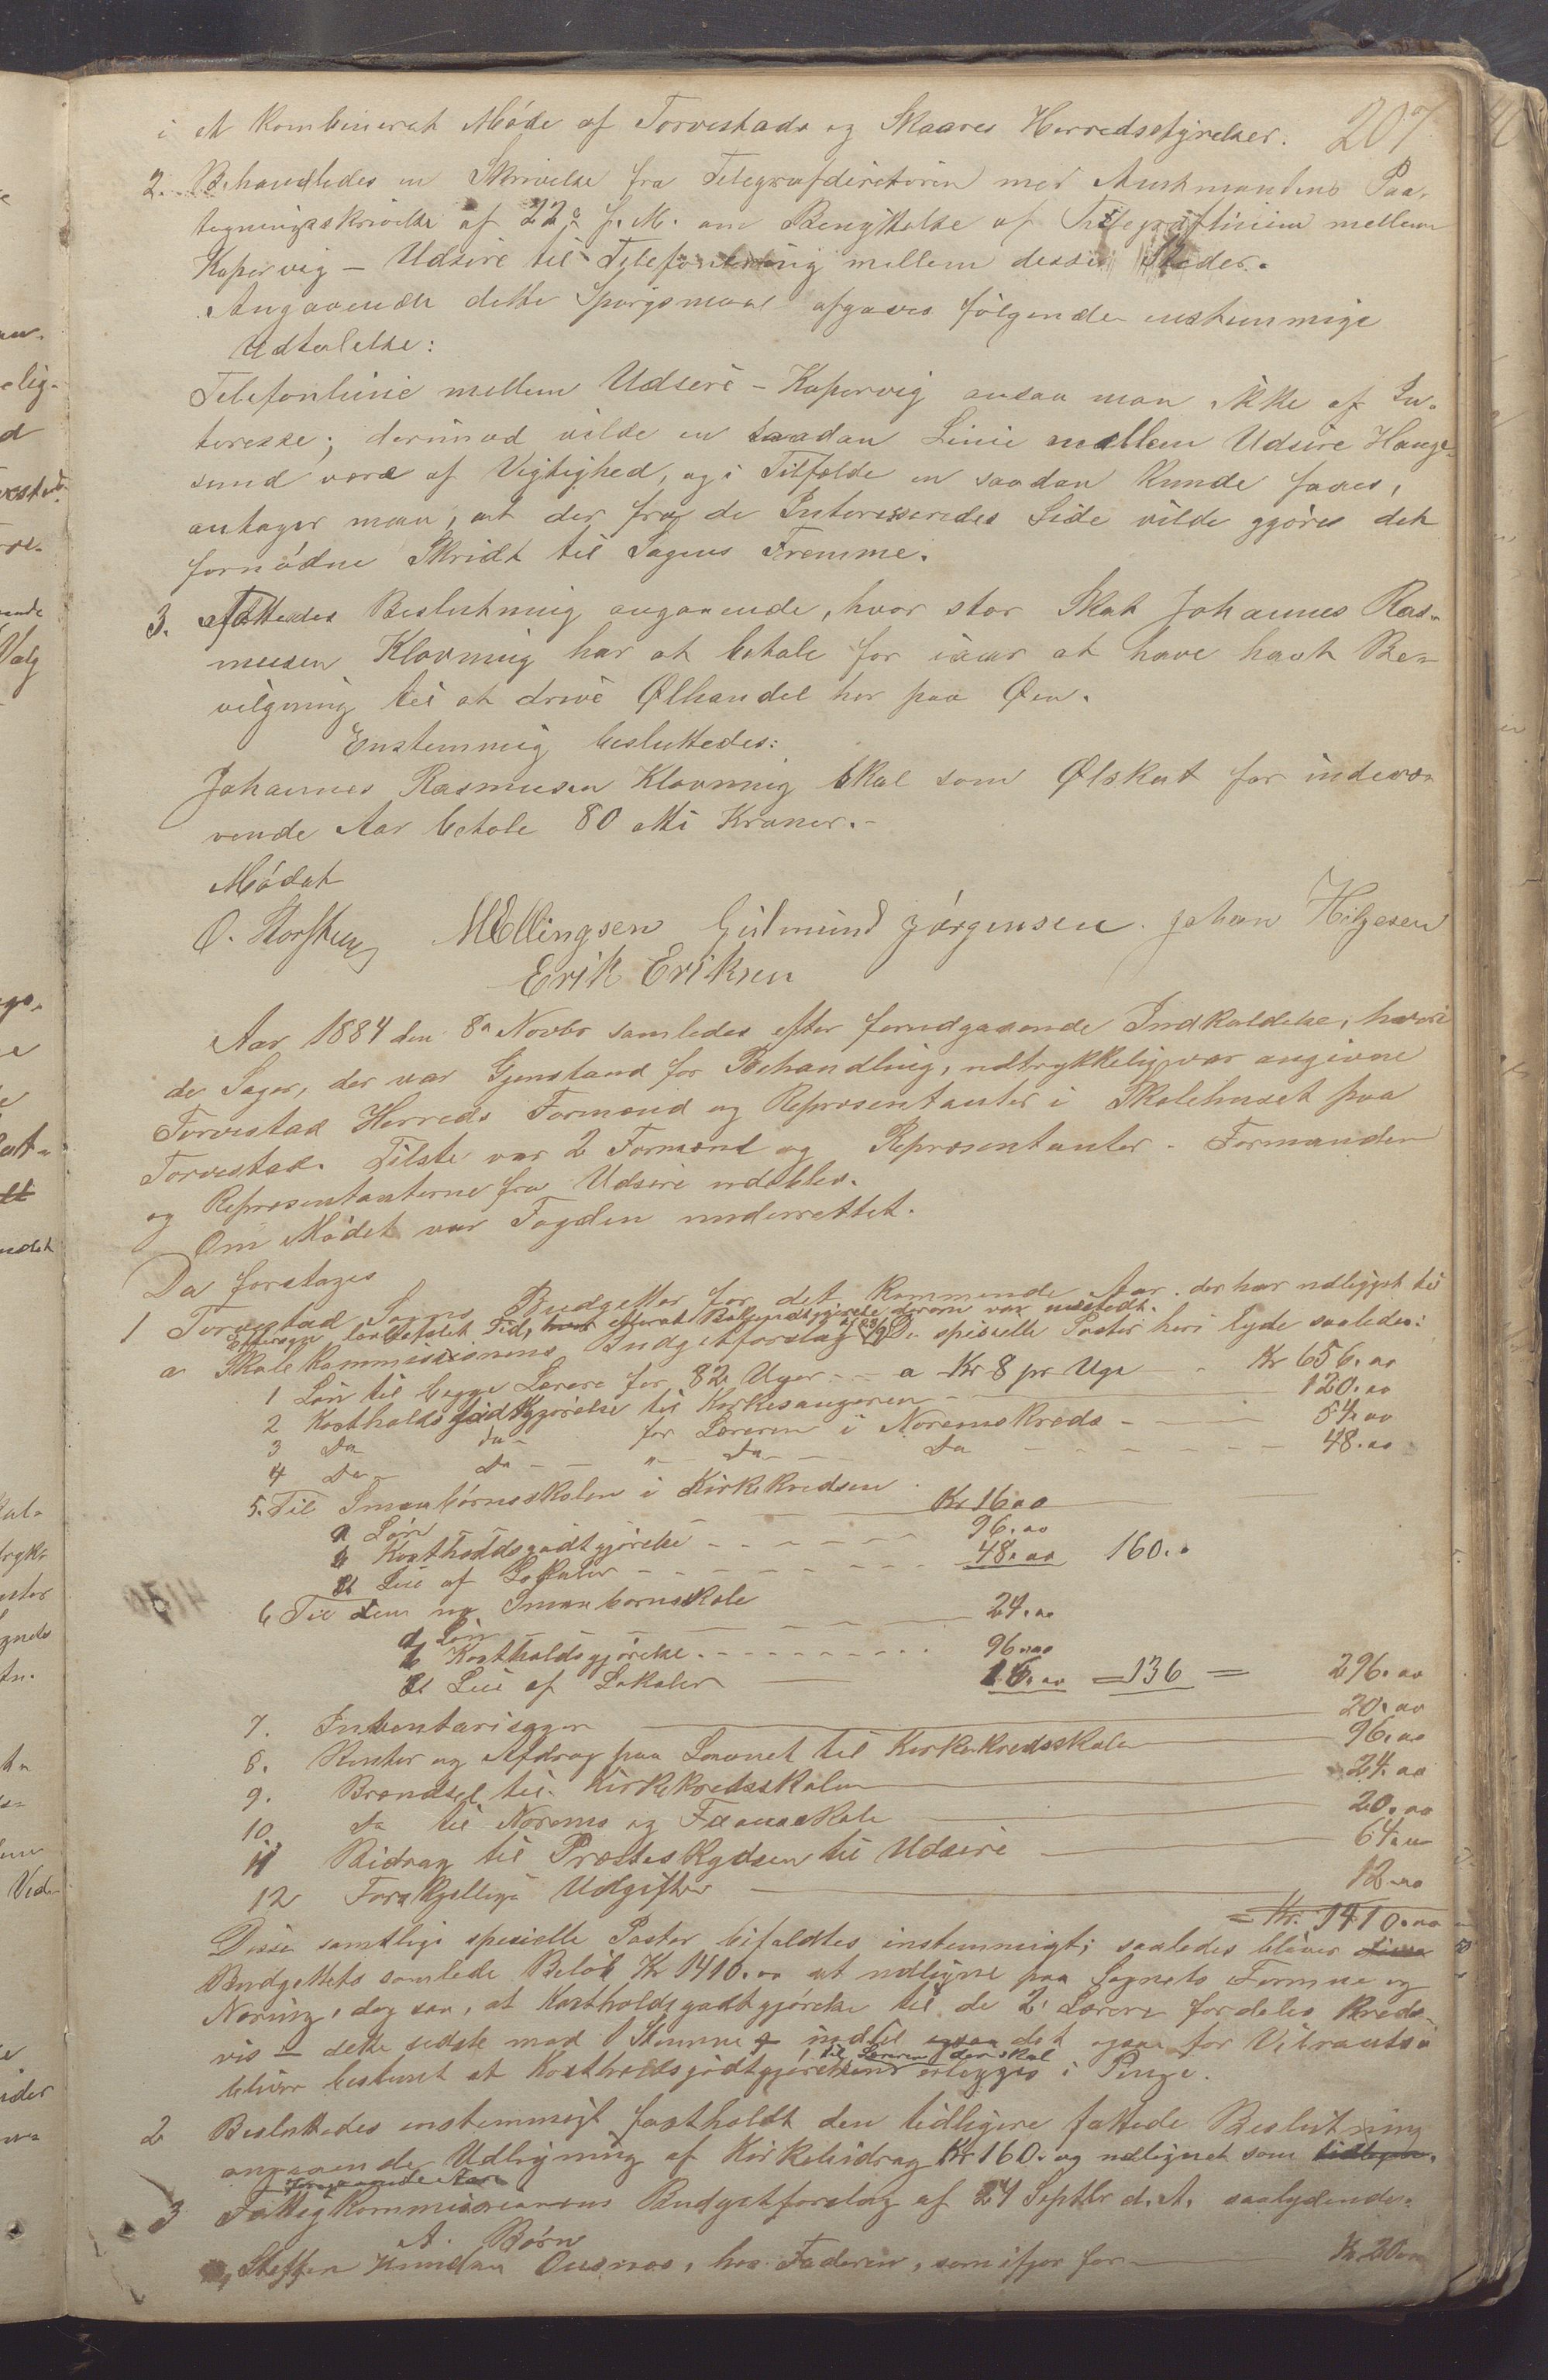 207
i et kombineret Møde af Torvestads og Skaares Herredsstyrelser.
2. Behandledes en Skrivelse fra Telegrafdirektøren med Amtmandens Paa-
tegningsskrivelse af 22de f. M. om Benyttelse af Telegraflinien mellem
Kopervig – Udsire til Telefonering mellem disse Steder.
Angaaende dette Spørgsmaal afgaves følgende enstemmige
Udtalelse:
Telefonlinie mellem Udsire – Kopervig ansaa man ikke af In-
teresse; derimod vilde en saadan Linie mellem Udsire Hauge-
sund være af Vigtighed, og i Tilfælde en saadan kunde faaes,
antager man, at der fra de Interesseredes Side vilde gjøres det
fornødne Skridt til Sagens Fremme.
3. Fattedes Beslutning angaaende, hvor stor Skat Johannes Ras-
musen Klovning har at betale for iaar at have havt Be-
vilgning til at drive Ølhandel her paa Øen.
Enstemmig besluttedes:
Johannes Rasmusen Klovning skal som Ølskat for indevæ-
rende Aar betale 80 otti Kroner.-
Mødet
O. Storsteen M Ellingsen Gudmund Jørgensen. Johan Helgesen
Erik Eriksen
Aar 1884 den 8de Novbr samledes efter forudgaaende Indkaldelse, hvori
de Sager, der var Gjenstand for Behandling, udtrykkelig var angivne
Torvestad Herreds Formænd og Repræsentanter i Skolehuset paa
Torvestad. Tilste var 2 Formænd og Repræsentanter. Formanden
og Repræsentanterne fra Udsire udeblev.
Om Mødet var Fogden underrettet.
Da foretoges
1 Torvestad Sogns Budgetter for det kommende Aar. der har udligget til
Eftersyn lovbefalet Tid, efterat Bekjendtgjørelse derom var udstedt.
a Skolekommissionens Budgetforslag De specielle Poster heri lyde saaledes:
1 Løn til begge Lærere for 82 Uger – – a Kr 8 pr Uge – Kr 656.00
2 Kostholdsgodtgjørelse til Kirkesangeren – 120.00
3 Do do – for Læreren i Norems Kreds – 54.00
4 Do – Do – – " – Do – Do – – 48.00
5. Til Smaabørnsskolen i Kirkekredsen
a Løn Kr 16.00
b Kostholdsgodtgjørelse – – – – 96.00
c Leie af Lokaler – – – – 48.00 160.0
6 Til den ny Smaabørnsskole
a Løn – – – 24.00
b Kostholdsgjørelse – – – – 96.00
c Leie af Lokaler – 16.00 = 136 = 296.00
7. Inventarisager – 20.00
8. Renter og Afdrag paa Laanet til Kirkekredsskolen – 96.00
9. Brændsel til Kirkekredsskolen – 24.00
10 do til Norems og Skole – 20.00
11 Bidrag til Præsteskydsen til Udsire – 64.00
12 Forskjellige Udgifter – 12.00
= Kr. 1410.00
Disse samtlige specielle Poster bifaldtes enstemmigt; saaledes bliver
Budgettets samlede Beløb Kr 1410.00 at udligne paa Sognets Formue og
Næring, dog saa, at Kostholdsgodtgjørelse til de 2 Lærere fordeles kreds-
vis – dette sidste mod 1 Stemme indtil det ogsaa for
til Læreren der skal
bliver bestemt at Kostholdsgodtgjørelsens erlægges i Penge.
2 Besluttedes enstemmigt fastholdt den tidligere fattede Beslutning
angaaende Udligning af Kirkebidrag Kr 160. og udlignet som tidligere.
foregaaende Aar
3 Fattigkommissionens Budgetforslag af 24 Septbr d. A. saalydende:
A. Børn
Steffen Ousnæs, hos Faderen, som ifjor for – Kr 20.00